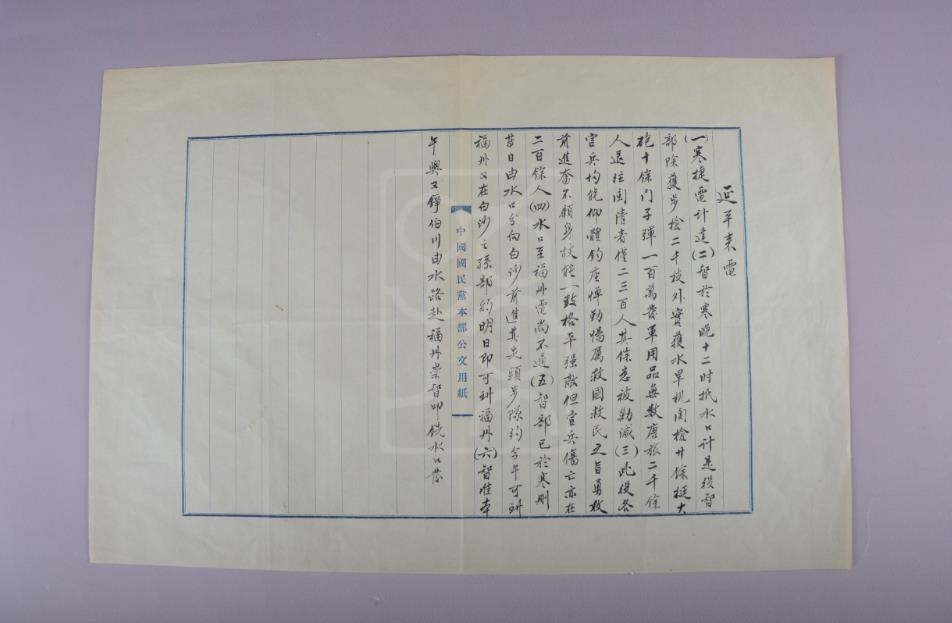 延平來電
(一)寒捷電計達(二)智於寒晚十二时抵水口計是役智
部除獲步槍二千枝外實獲水旱机関槍廿餘挺大
砲十餘门子彈一百萬發軍用品無数唐旅二千餘
人退往闽清者僅二三百人其餘悉被勦滅(三)此役各
官兵均能仰體钧座惮勤惕厲救國救民之旨勇敢
前進奋不顧身故能一致格平强敵但官兵傷亡亦在
二百餘人(四)水口至福州電尚不通(五)智部已於寒删
昔日由水口分向白沙前進其先頭步隊約今午可到
福州公在白沙之孫部約明日即可到福州(六)智准本
午與又錚伯川由水路赴福州崇智叩銑水口發
中國國民黨本部公文用紙